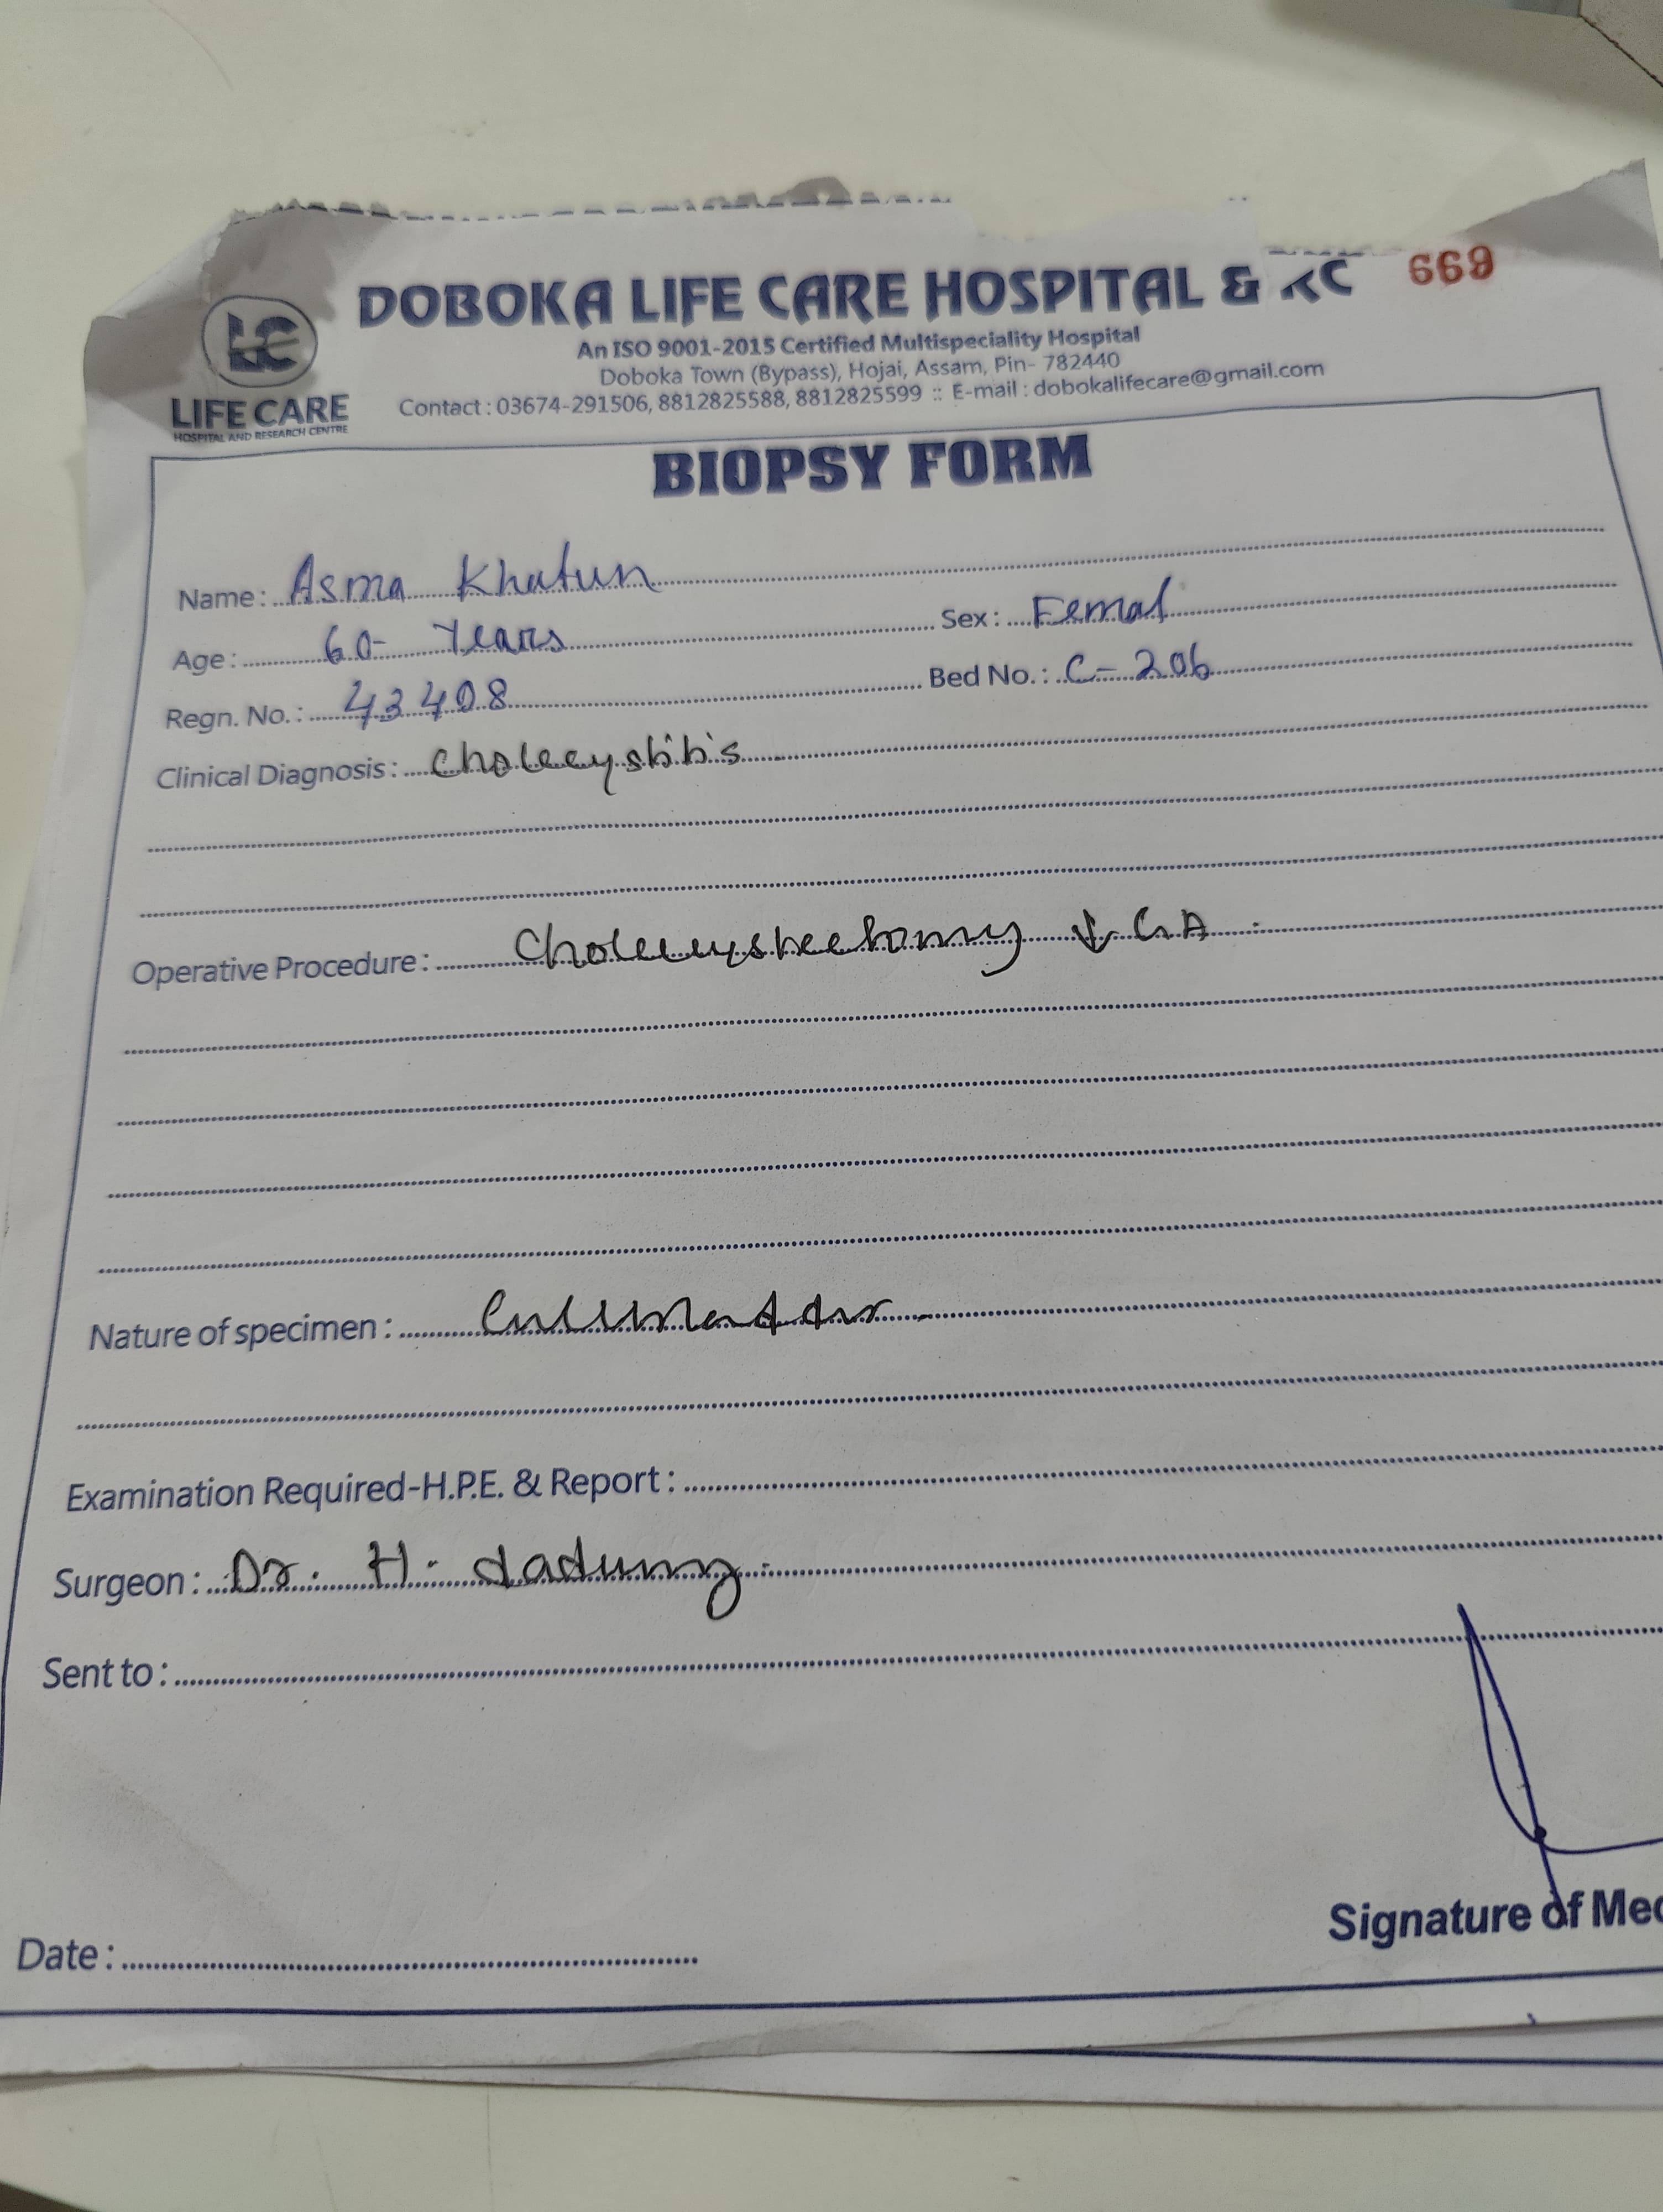 DOBOKA LIFE CARE HOSPITAL & RC 669
LC
LIFE CARE
HOSPITAL AND RESEARCH CENTRE
An ISO 9001-2015 Certified Multispeciality Hospital
Doboka Town (Bypass), Hojai, Assam, Pin- 782440
Contact : 03674-291506, 8812825588, 8812825599 :: E-mail : dobokalifecare@gmail.com
BIOPSY FORM
Name: Asma Khatun
Age: 60- Years Sex: Femal
Regn. No.: 43408 Bed No.: C-206
Clinical Diagnosis: Cholecystitis
Operative Procedure: Cholecystectomy ↓ GA
Nature of specimen:
Examination Required-H.P.E. & Report:
Surgeon: Dr. H.
Sent to:
Date: Signature of Med